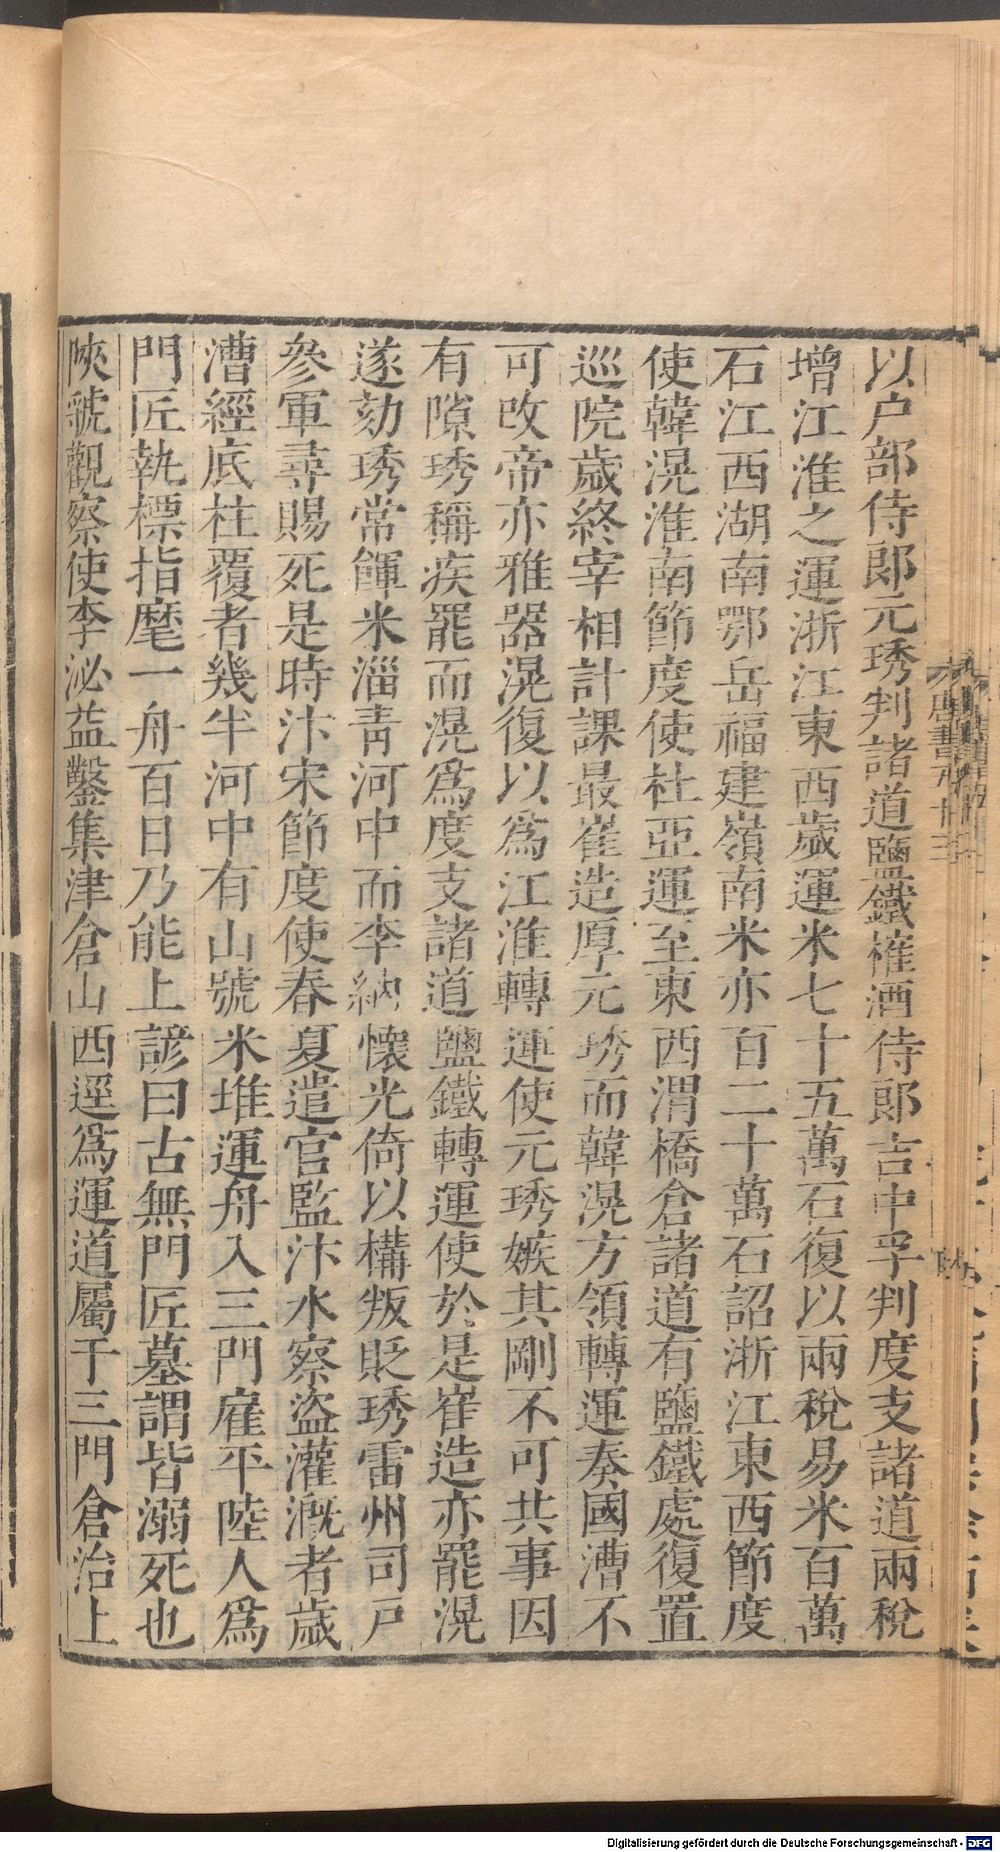 以户部侍郎元琇判諸道鹽鐵榷酒侍郎吉中孚判度支諸道兩稅
增江淮之運浙江東西歲運米七十五萬石復以兩稅易米百萬
石江西湖南鄂岳福建嶺南米亦百二十萬石詔浙江東西節度
使韓滉淮南節度使杜亞運至東西渭橋倉諸道有鹽鐵處復置
巡院歲終宰相計課最崔造厚元琇而韓滉方領轉運奏國漕不
可改帝亦雅器滉復以爲江淮轉運使元琇嫉其剛不可共事因
有隙琇稱疾罷而滉爲度支諸道鹽鐵轉運使於是崔造亦罷滉
遂劾琇常餫米淄青河中而李納懷光倚以構叛貶琇雷州司戶
參軍尋賜死是時汴宋節度使春夏遣官監汴水察盜灌溉者歲
漕經底柱覆者幾半河中有山號米堆運舟入三門雇平陸人爲
門匠執標指麾一舟百日乃能上諺曰古無門匠墓謂皆溺死也
陝虢觀察使李泌益鑿集津倉山西逕爲運道屬于三門倉治上
唐書志四十三
Digitalisierung gefördert durch die Deutsche Forschungsgemeinschaft - DFG